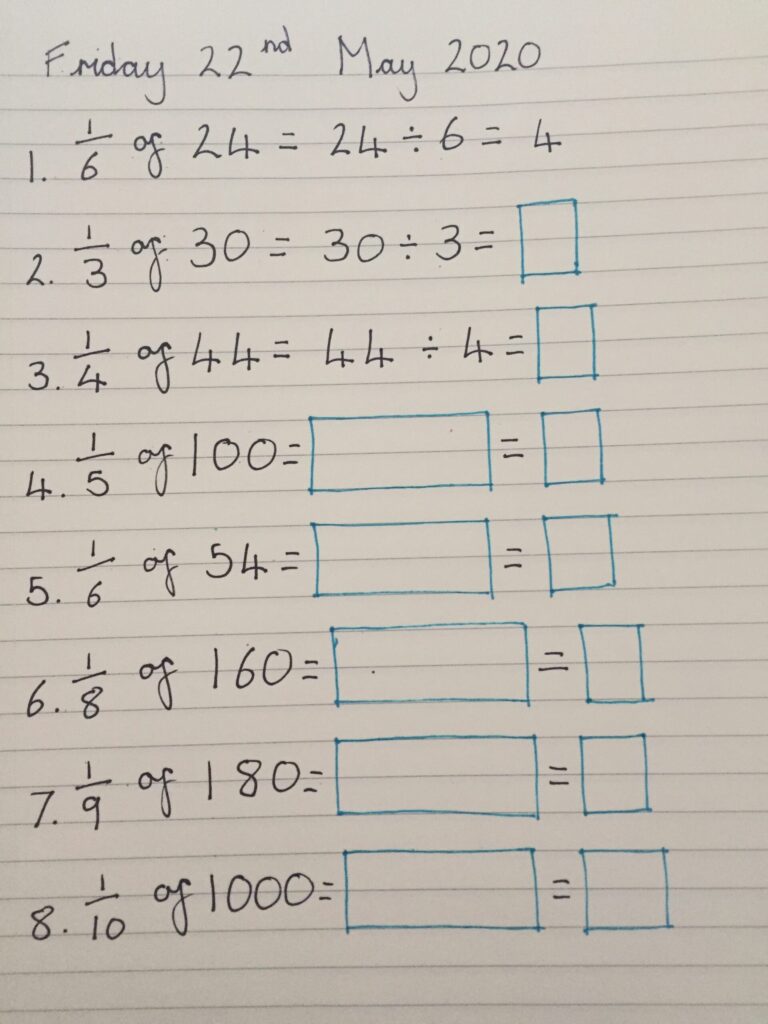 Friday 22nd May 2020
1. 1/6 of 24 = 24 ÷ 6 = 4
2. 1/3 of 30 = 30 ÷ 3 =
3. 1/4 of 44 = 44 ÷ 4 =
4. 1/5 of 100 = =
5. 1/6 of 54 = =
6. 1/8 of 160 = =
7. 1/9 of 180 = =
8. 1/10 of 1000 = =